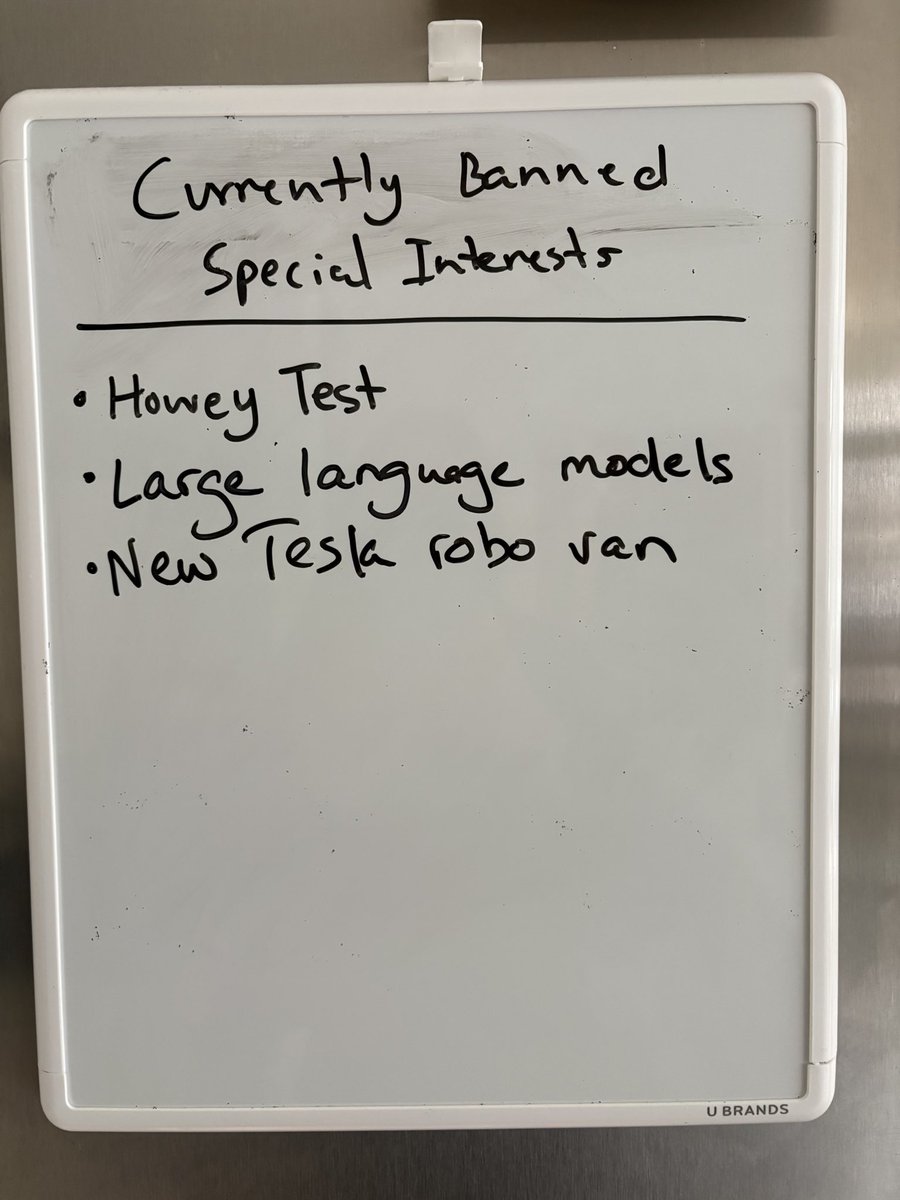 Currently Banned
Special Interests
• Howey Test
• Large language models
• New Tesla robo van
U BRANDS